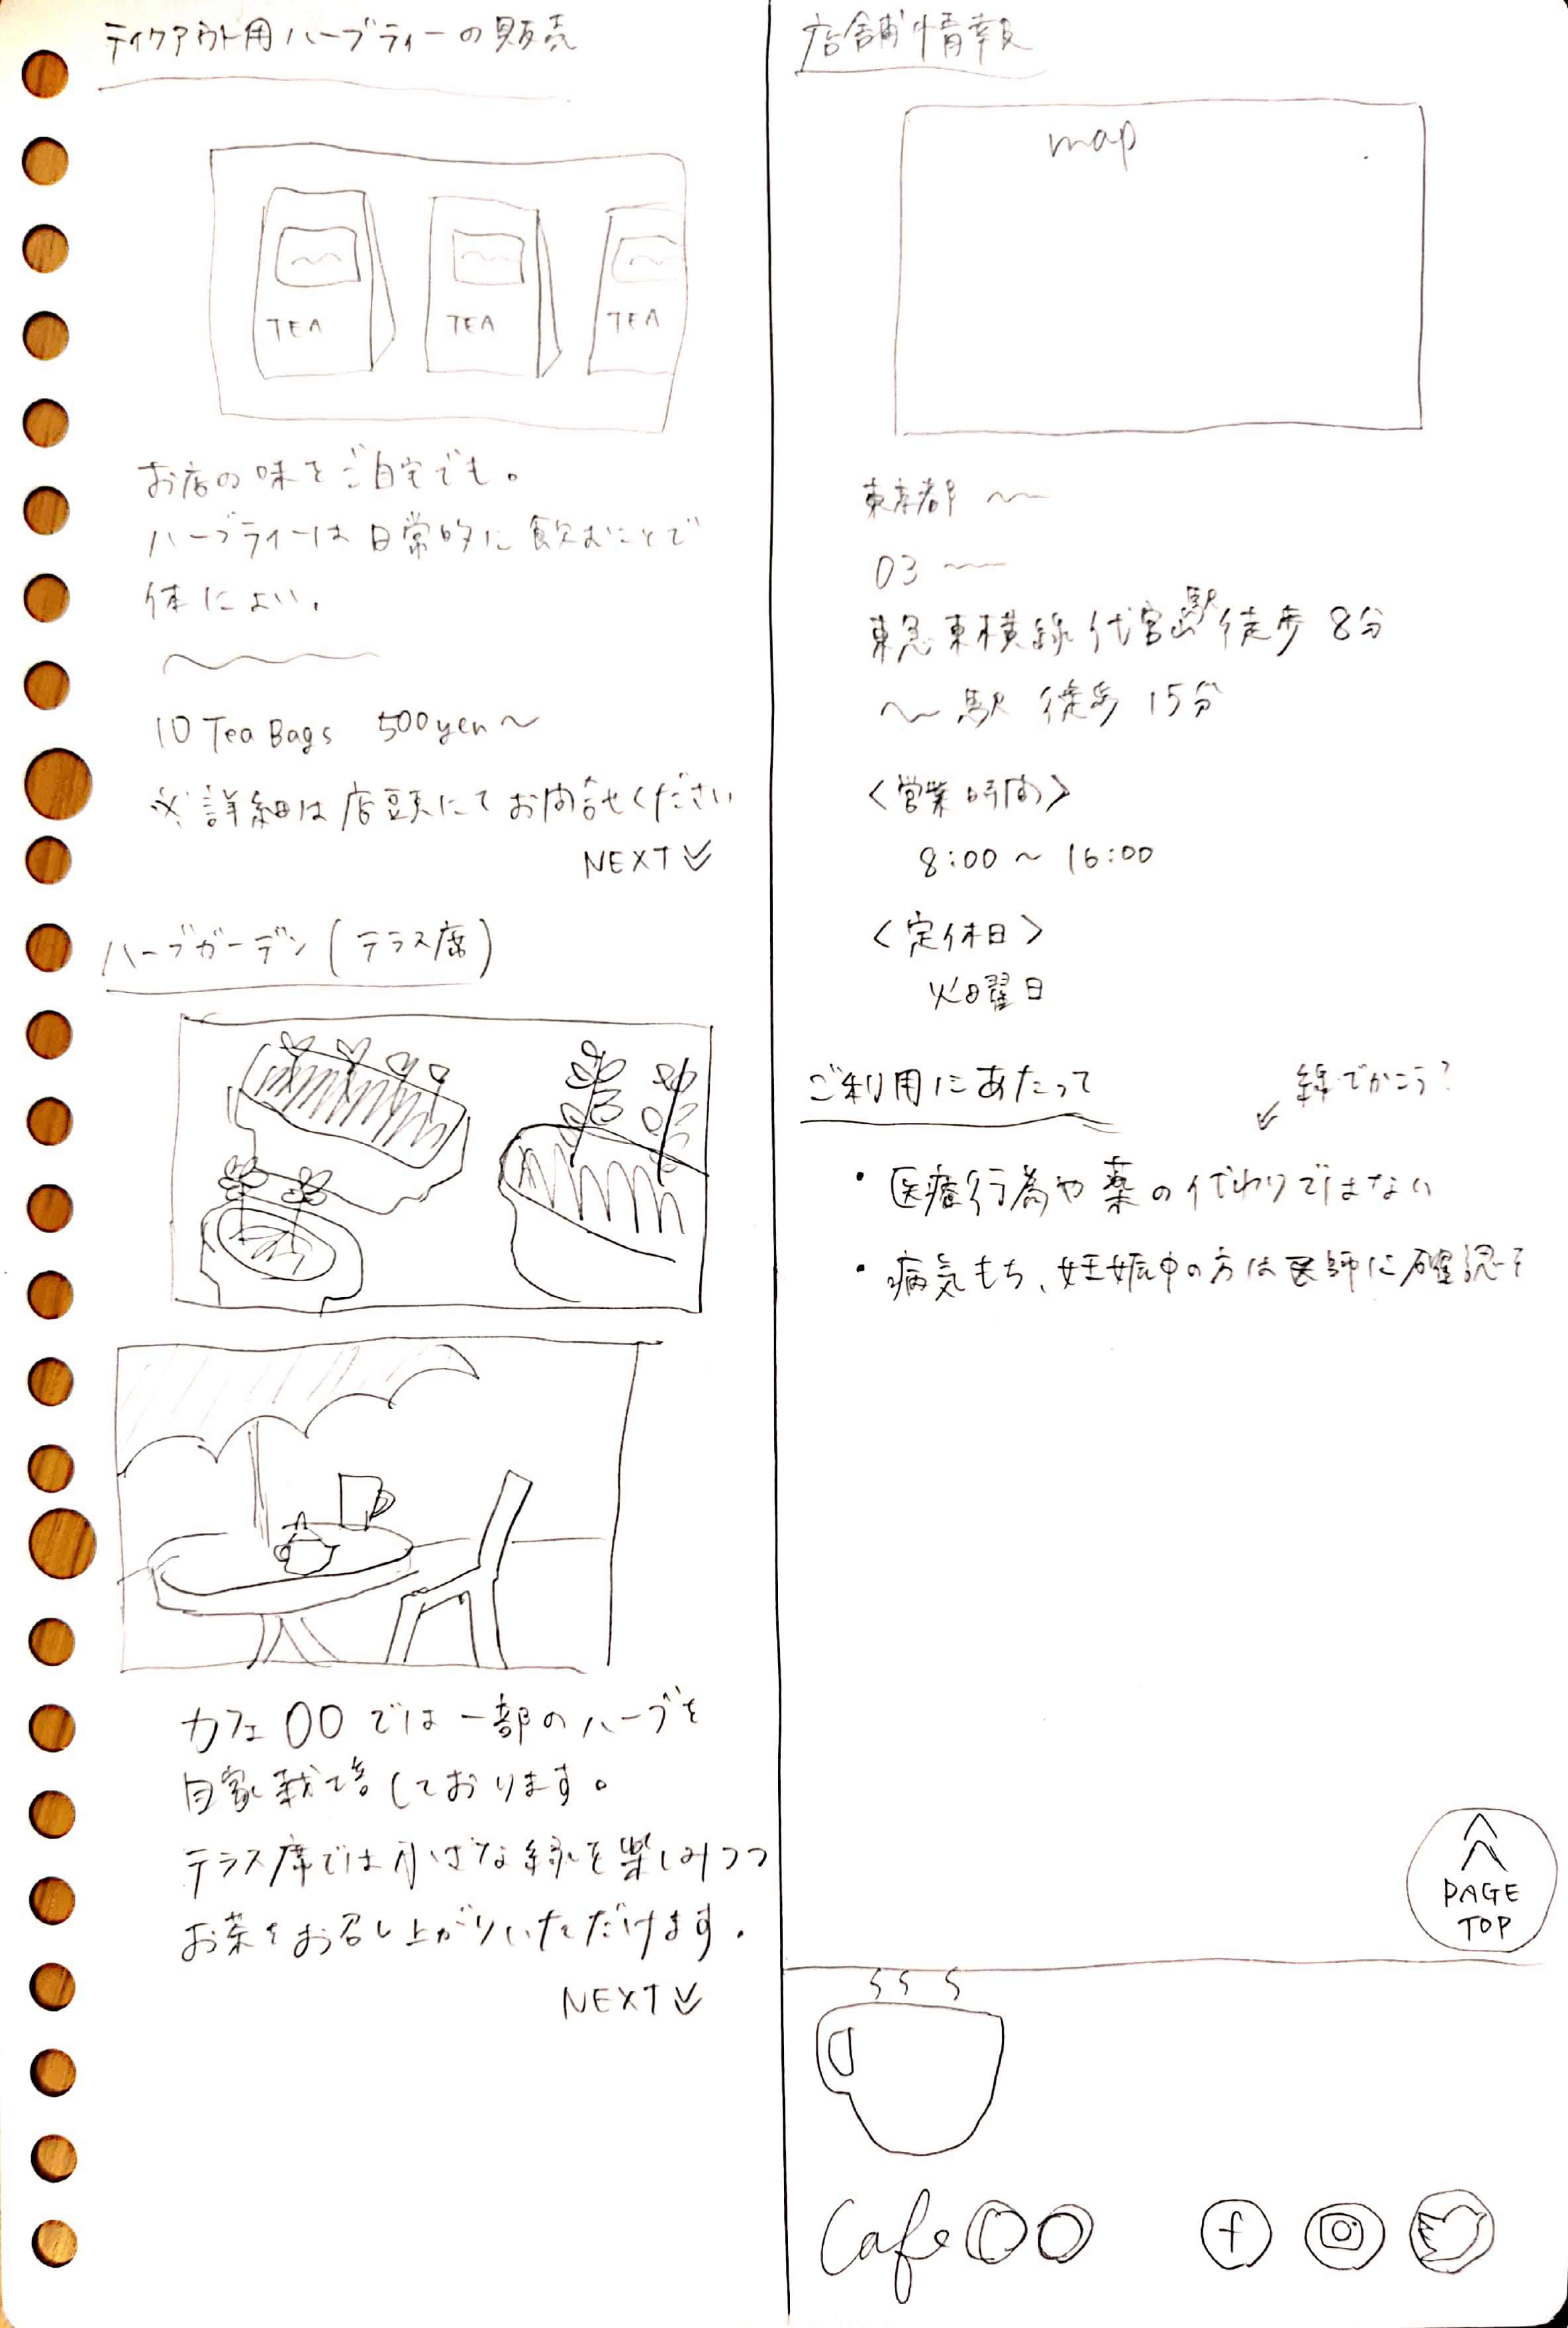 テイクアウト用ハーブティーの販売
TEA
TEA
TEA
お店の味をご自宅でも。
ハーブティーは日常的に飲むことで
体によい。
10 Tea Bags 500yen〜
※詳細は店頭にてお問合せください
NEXT
ハーブガーデン(テラス席)
カフェ〇〇では一部のハーブを
自家栽培しております。
テラス席では小さな緑を楽しみつつ
お茶をお召し上がりいただけます。
NEXT
店舗情報
map
東京都 〜〜
03 〜〜
東急東横線代官山駅徒歩8分
〜〜駅 徒歩15分
<営業時間>
8:00〜16:00
<定休日>
火曜日
ご利用にあたって
線でかこう?
・医療行為や薬の代わりではない
・病気もち、妊娠中の方は医師に確認を
PAGE
TOP
Cafe〇〇
f